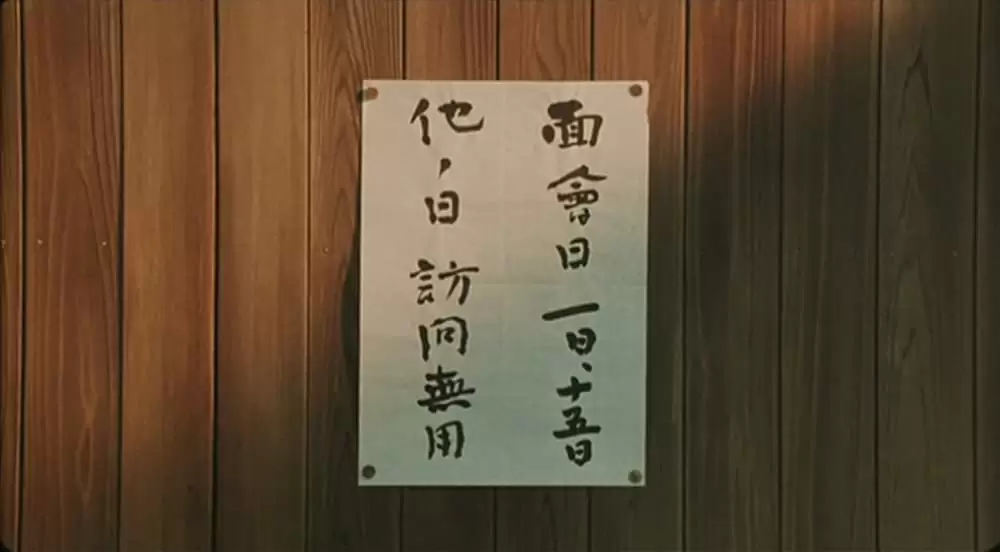 面會日 一日、十五日
他、日 訪問無用